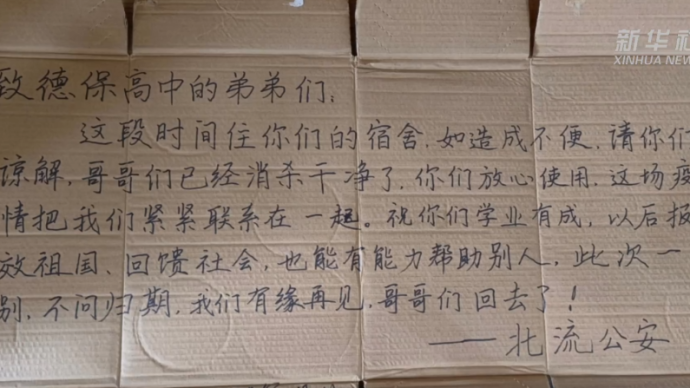 新华社
XINHUA NEWS
致德保高中的弟弟们:
这段时间住你们的宿舍,如造成不便,请你们
谅解,哥哥们已经消杀干净了,你们放心使用,这场疫
情把我们紧紧联系在一起。祝你们学业有成,以后报
效祖国、回馈社会,也能有能力帮助别人,此次一
别,不问归期,我们有缘再见,哥哥们回去了!
——北流公安